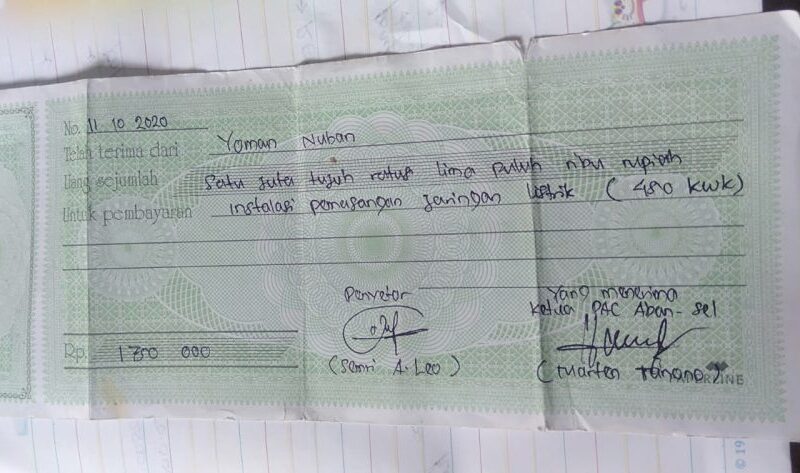 No. 11 10 2020
Telah terima dari Yaman Nuban
Uang sejumlah Satu Juta tujuh ratus lima puluh ribu rupiah
Untuk pembayaran Instalasi pemasangan Jaringan listrik ( 450 kwk)
Penyetor
Yang menerima
Ketua PAC Aban - sel
Rp. 1 750 000
(Semri A. Leo )
(Marten Tanono )